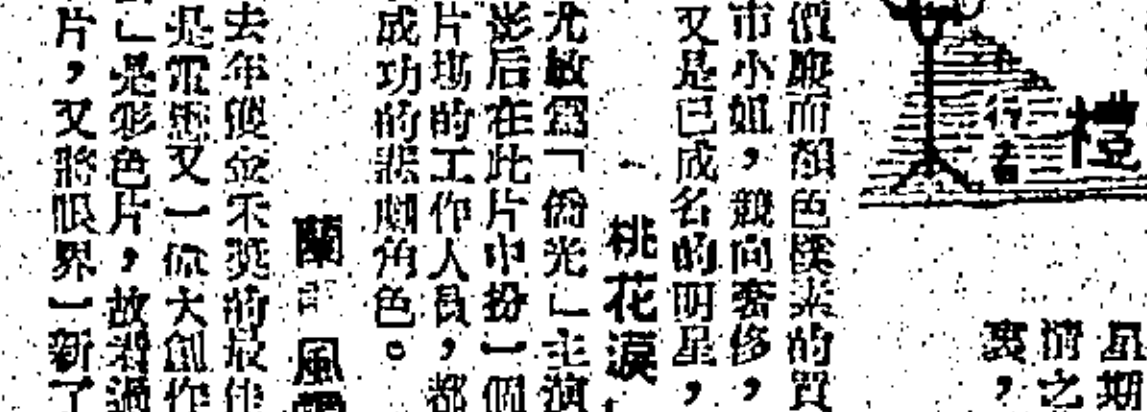 禮
行者
星期
情之
裏，
價廉而顏色樸素的質
市小姐，競向奢侈，
又是已成名的明星，
桃花淚
尤敏爲「僑光」主演
影后在此片中扮一個
片塲的工作人員，都
成功的悲劇角色。
蘭 風
去年獲金禾獎的最佳
是電懋又一偉大創作
」是彩色片，故看過
片，又將眼界一新了